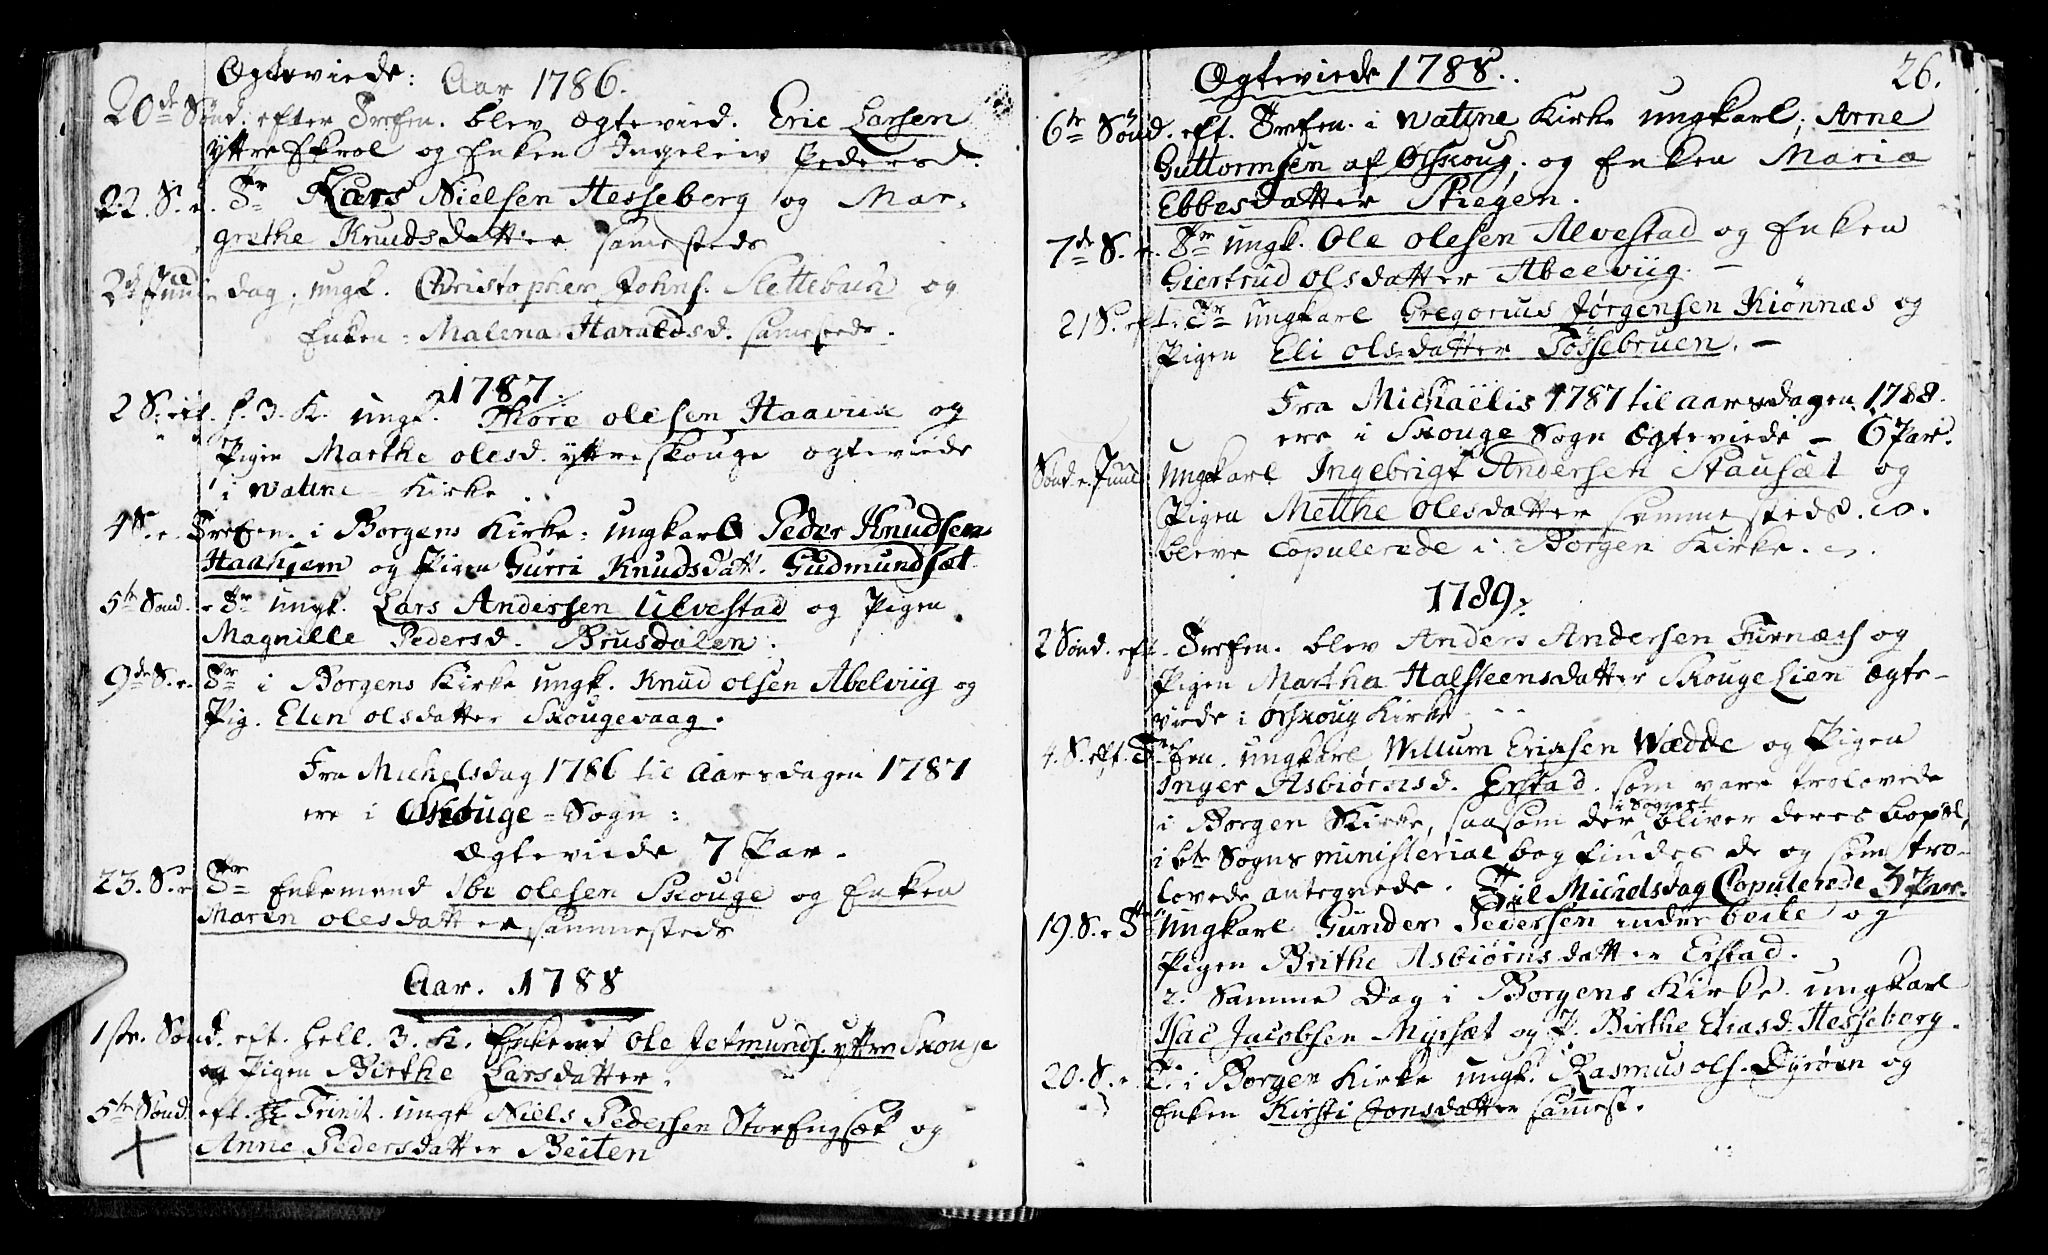 Ægteviede: Aar 1786.
20de Sönd. efter Trefen. blev ægtevied. Eric Larsen
yttre Skrol og Enken Ingeleiv Pedersd.
22. S. e. Tr Lars Nielsen Hesseberg og Mar-
grethe Knudsdatter samesteds
2den Juule dag, ungk. Christopher Johns. Slettebach og
Enken = Malena Haraldsd. samesteds.
1787
2 S. eft. h. 3. K. ungk. Thore olesen Haavic og
Pigen Marthe olesd. yttre skouge ægteviede
i Watne Kirke
4 S. e Trefen. i Borgens Kirke: ungkarl Peder Knudsen
Haahjem og Pigen Gurri Knudsdatt. Gudmundsæt
5te Sönd. e Tr ungk. Lars Andersen Ulvestad og Pigen
Magnille Pedersd. Brusdalen.
9de S. e. Tr i Borgens Kirke ungk. Knud olsen Abelviig og
Pig. Elen olsdatter Skougevaag.
Fra Michelsdag 1786 til Aarsdagen 1787
ere i Skouge = Sogn:
Ægteviede 7 Par.
23. S. e Tr Enkemand Ibr olesen Skouge og Enken
Maren olesdatter sammesteds
Aar. 1788
1ste. Sönd. eft. hell. 3. K. Enkem Ole Jetmunds. yttre Skouge
og Pigen Birthe Larsdatter.
5te Sönd. eft. Trinit. ungk Niels Pedersen Storfugsæt og
Anne Pedersdatter Beiten
Ægteviede 1788. 26.
6te Sönd. eft. Trefen. i Watne Kirke ungkarl, Arne
Guttormsen af Ørskoug, og Enken Maria
Ebbesdatter Stiegen.
7de S. e. Tr ungk. Ole olesen Alvestad og Enken
Giertrud olsdatter Abelviig. –
21 S. eft. Tr ungkarl Gregorius Jørgensen Kiönnæs og
Pigen Eli olsdatter Tössebruen. –
Fra Michaëlis 1787 til aarsdagen 1788.
ere i Skouge Sogn Ægteviede – 6 Par.
Sönd. e. Juul ungkarl Ingebrigt Andersen Stausæt og
Pigen Metthe olesdatter sammesteds.
bleve Copulerede i Borgen Kirke.
1789.
2 Sönd. eft. Trefen. blev Anders Andersen Furnæs og
Pigen Martha Halsteensdatter Skouge Lien Ægte-
viede i Ørskoug Kirke
4. S. eft. Trefen. ungkarl Willum Ericksen Wædde og Pigen
Inger Asbiörnsd. Erstad. som vare trolovede
i Borgen Kirke, saasom der i Sognet bliver deres bopæl,
i bte Sogns ministerial bog findes de og som tro-
lovede antegnede. Til Michelsdag Copulerede 3 Par.
19. S. e Tr ungkarl Gunder Pedersen indre boile og
Pigen Brithe Asbiörnsdatter Erstad.
2. Samme Dag i Borgens Kirke ungkarl
Isac Jacobsen Myrsæt og P. Birthe Eliasd. Hesseberg.
20. S. e. T. i Borgen Kirke ungk. Rasmus ols. Dyröen og
Enken Kirsti Jonsdatter samest.